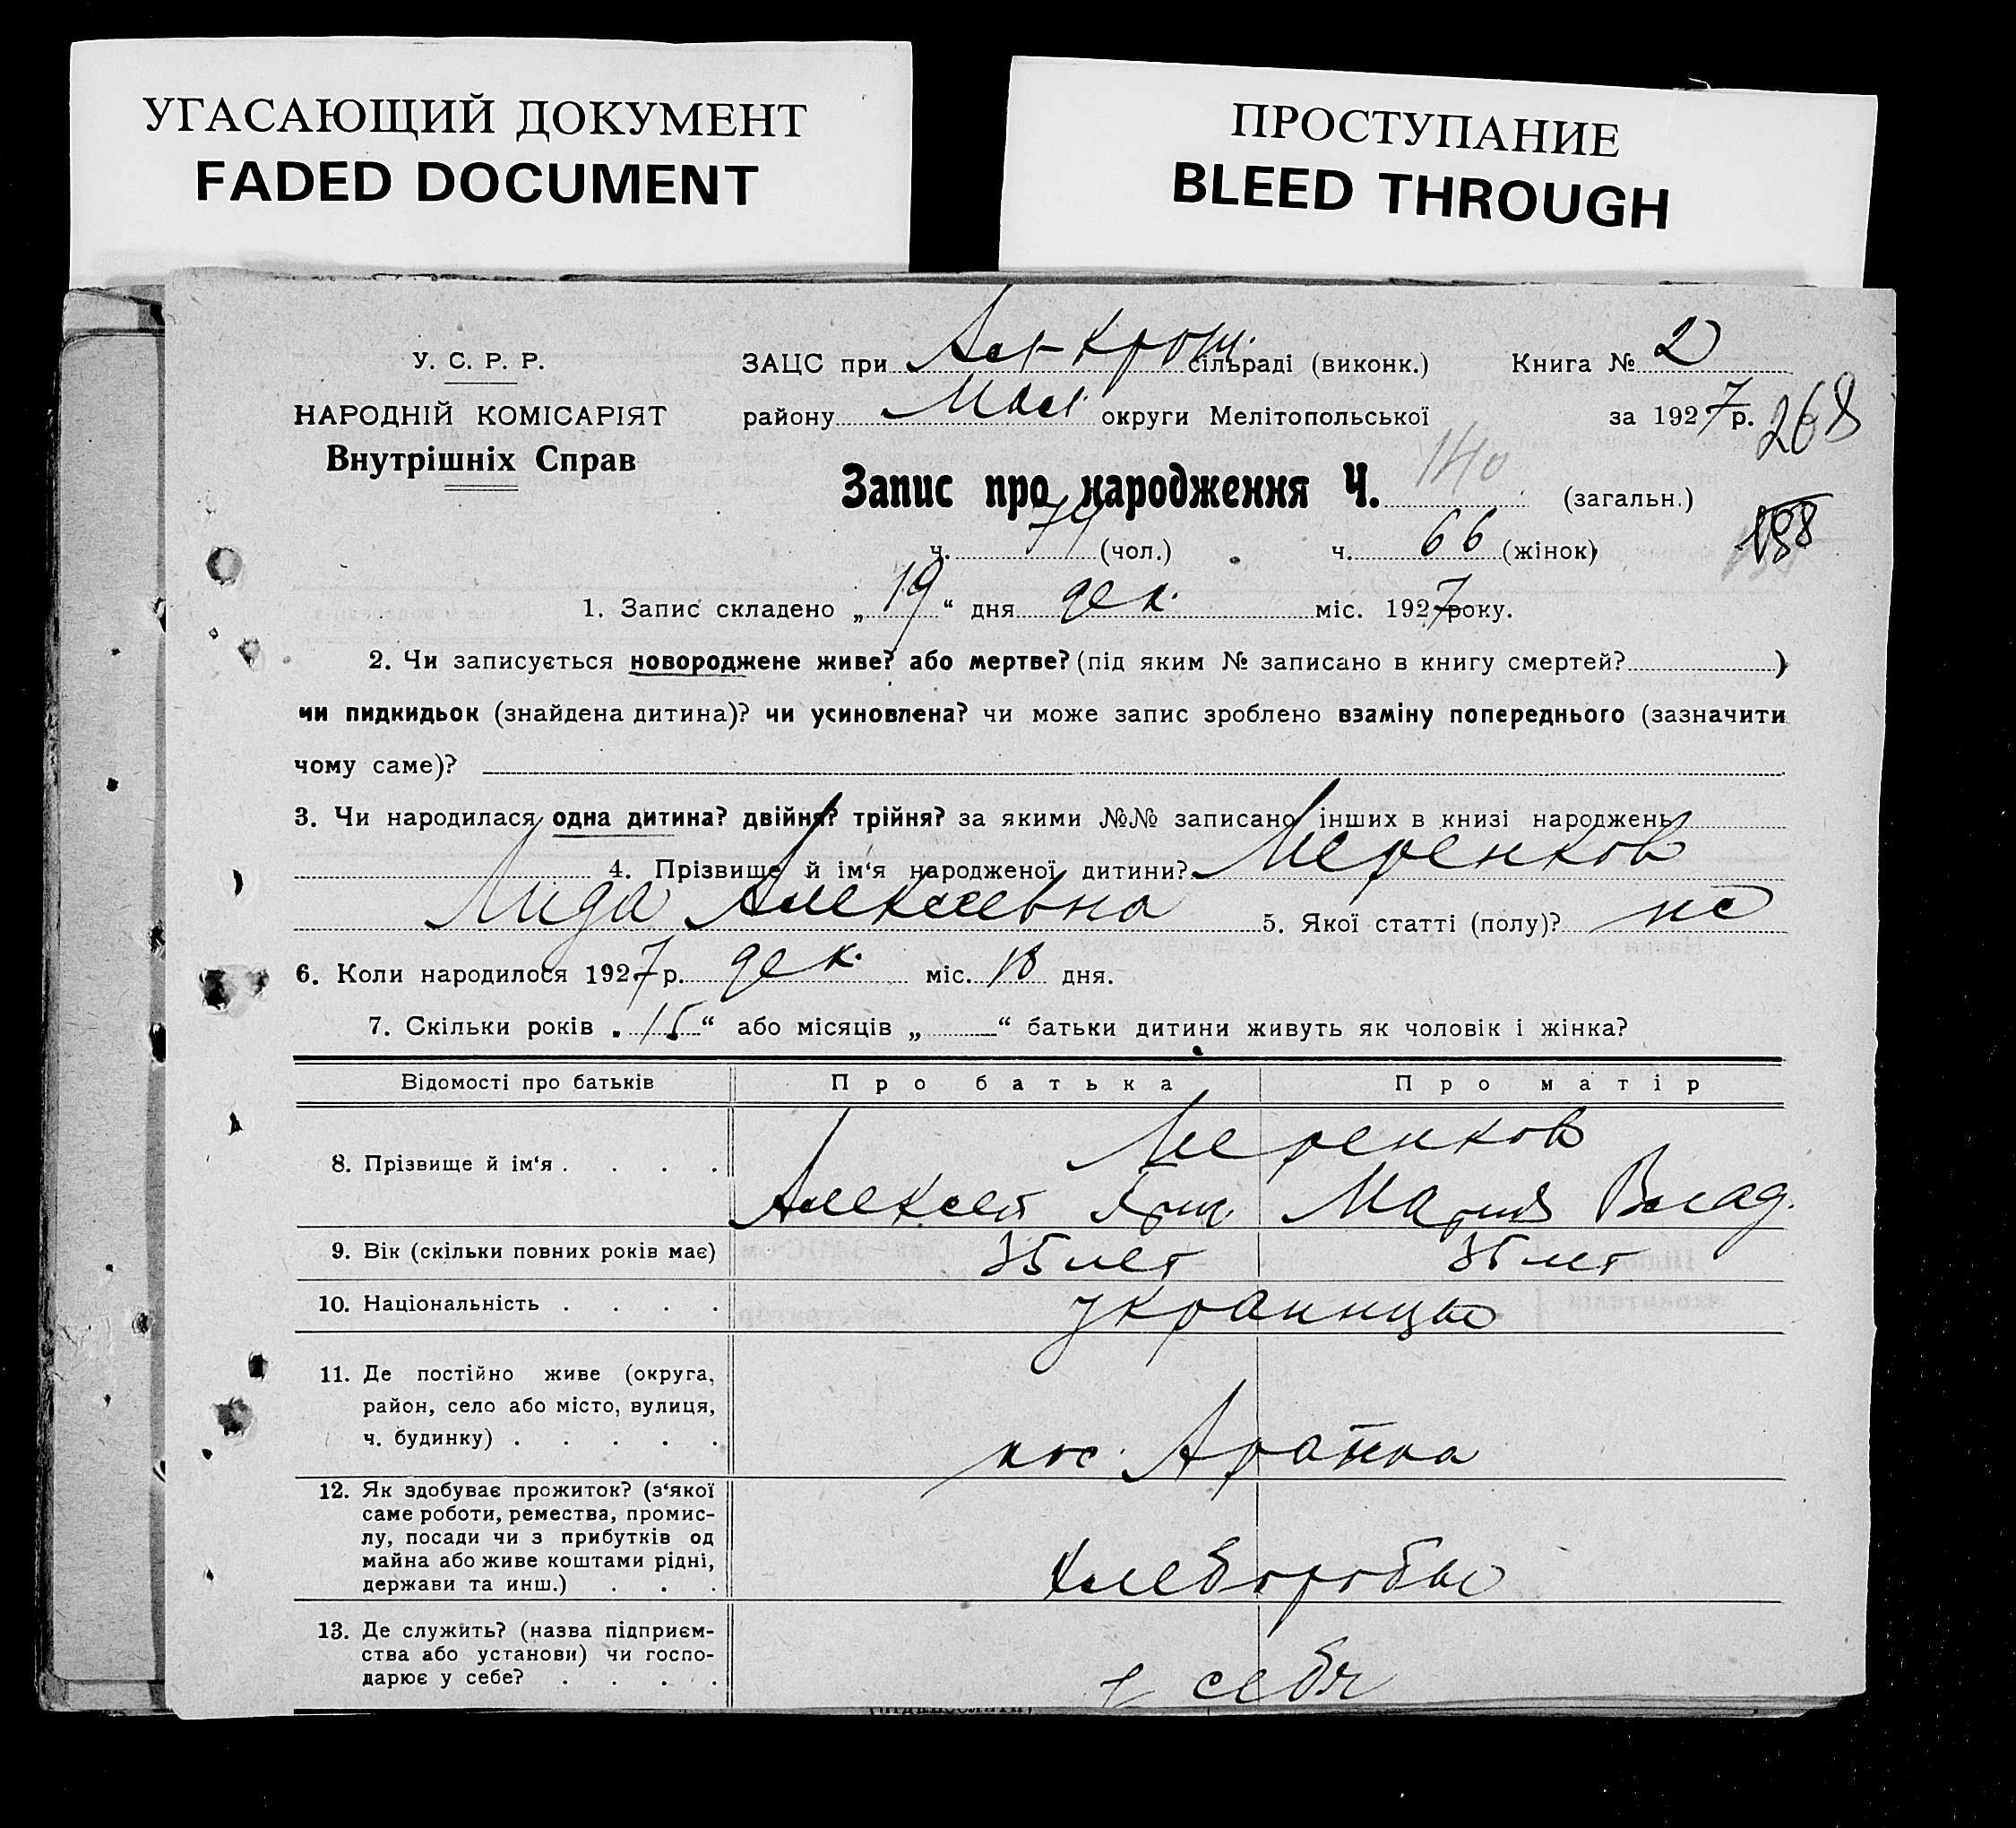 УГАСАЮЩИЙ ДОКУМЕНТ
FADED DOCUMENT
ПРОСТУПАНИЕ
BLEED THROUGH
У. С. Р. Р.
НАРОДНІЙ КОМІСАРІЯТ
Внутрішніх Справ
ЗАЦС при сільраді (виконк.) Книга № 2
району округи Мелітопольської за 1927 р. 268
Запис про народження Ч. 140 (загальн.)
ч. 74 (чол.) ч. 66 (жінок) 138
1. Запис складено „ 19 “ дня дек. міс. 1927 року.
2. Чи записується новороджене живе? або мертве? (під яким № записано в книгу смертей? )
чи пидкидьок (знайдена дитина)? чи усиновлена? чи може запис зроблено взаміну попереднього (зазначити
чому саме)?
3. Чи народилася одна дитина? двійня? трійня? за якими №№ записано інших в книзі народжень
4. Прізвище й ім‘я народженої дитини? Меренков
Лида Алексеевна 5. Якої статті (полу)? ж
6. Коли народилося 1927 р. дек. міс. 18 дня.
7. Скільки років „ 15 “ або місяців „ “ батьки дитини живуть як чоловік і жінка?
Відомості про батьків Про батька Про матір
8. Прізвище й ім‘я . . . . Меренков
Алексей Мария Влад.
9. Вік (скільки повних років має) 35 лет 35 лет
10. Національність . . . . украинцы
11. Де постійно живе (округа,
район, село або місто, вулиця,
ч. будинку) . . . . . пос.
12. Як здобуває прожиток? (з‘якої
саме роботи, ремества, промис-
лу, посади чи з прибутків од
майна або живе коштами рідні,
держави та инш.) . . . хлеборобы
13. Де служить? (назва підприєм-
ства або установи) чи госпо-
дарює у себе? . . . . у себя